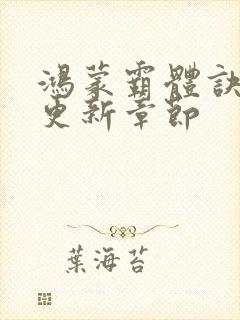 鴻蒙霸體訣
更新章節
葉海苔